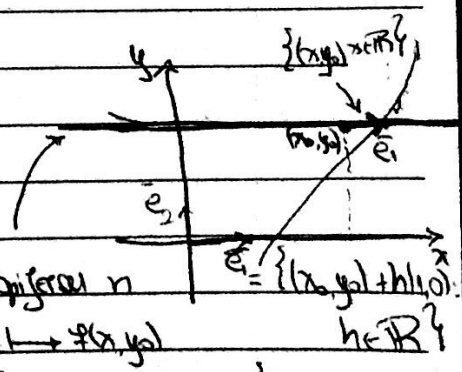 y
{(x,y₀) x∈ℝ}
(x₀,y₀)
ē₁
ē₂
x
ē₁ = {(x₀,y₀)+h(1,0)
n
↦ f(x,y₀) h∈ℝ}